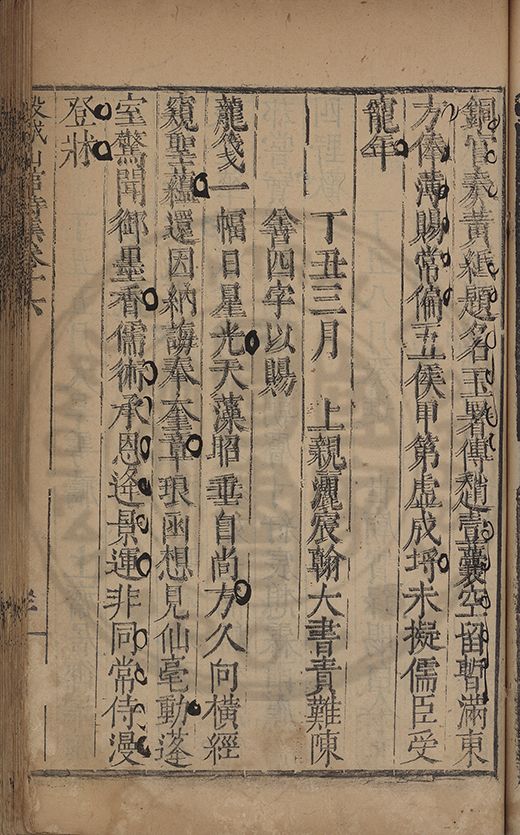 銅官奏黃紙題名玉署傳趙壹囊空留暫滿東
方俸薄賜常偏五侯甲第虛成埒未擬儒臣受
寵年
丁丑三月　上親灑宸翰大書責難陳
善四字以賜
龍箋一幅日星光天藻昭垂自尚方久向橫經
窺聖蘊還因納誨奉奎章琅函想見仙毫動蓬
室驚聞御墨香儒術承恩逢景運非同常侍漫
登牀
穀城山館詩集卷十六